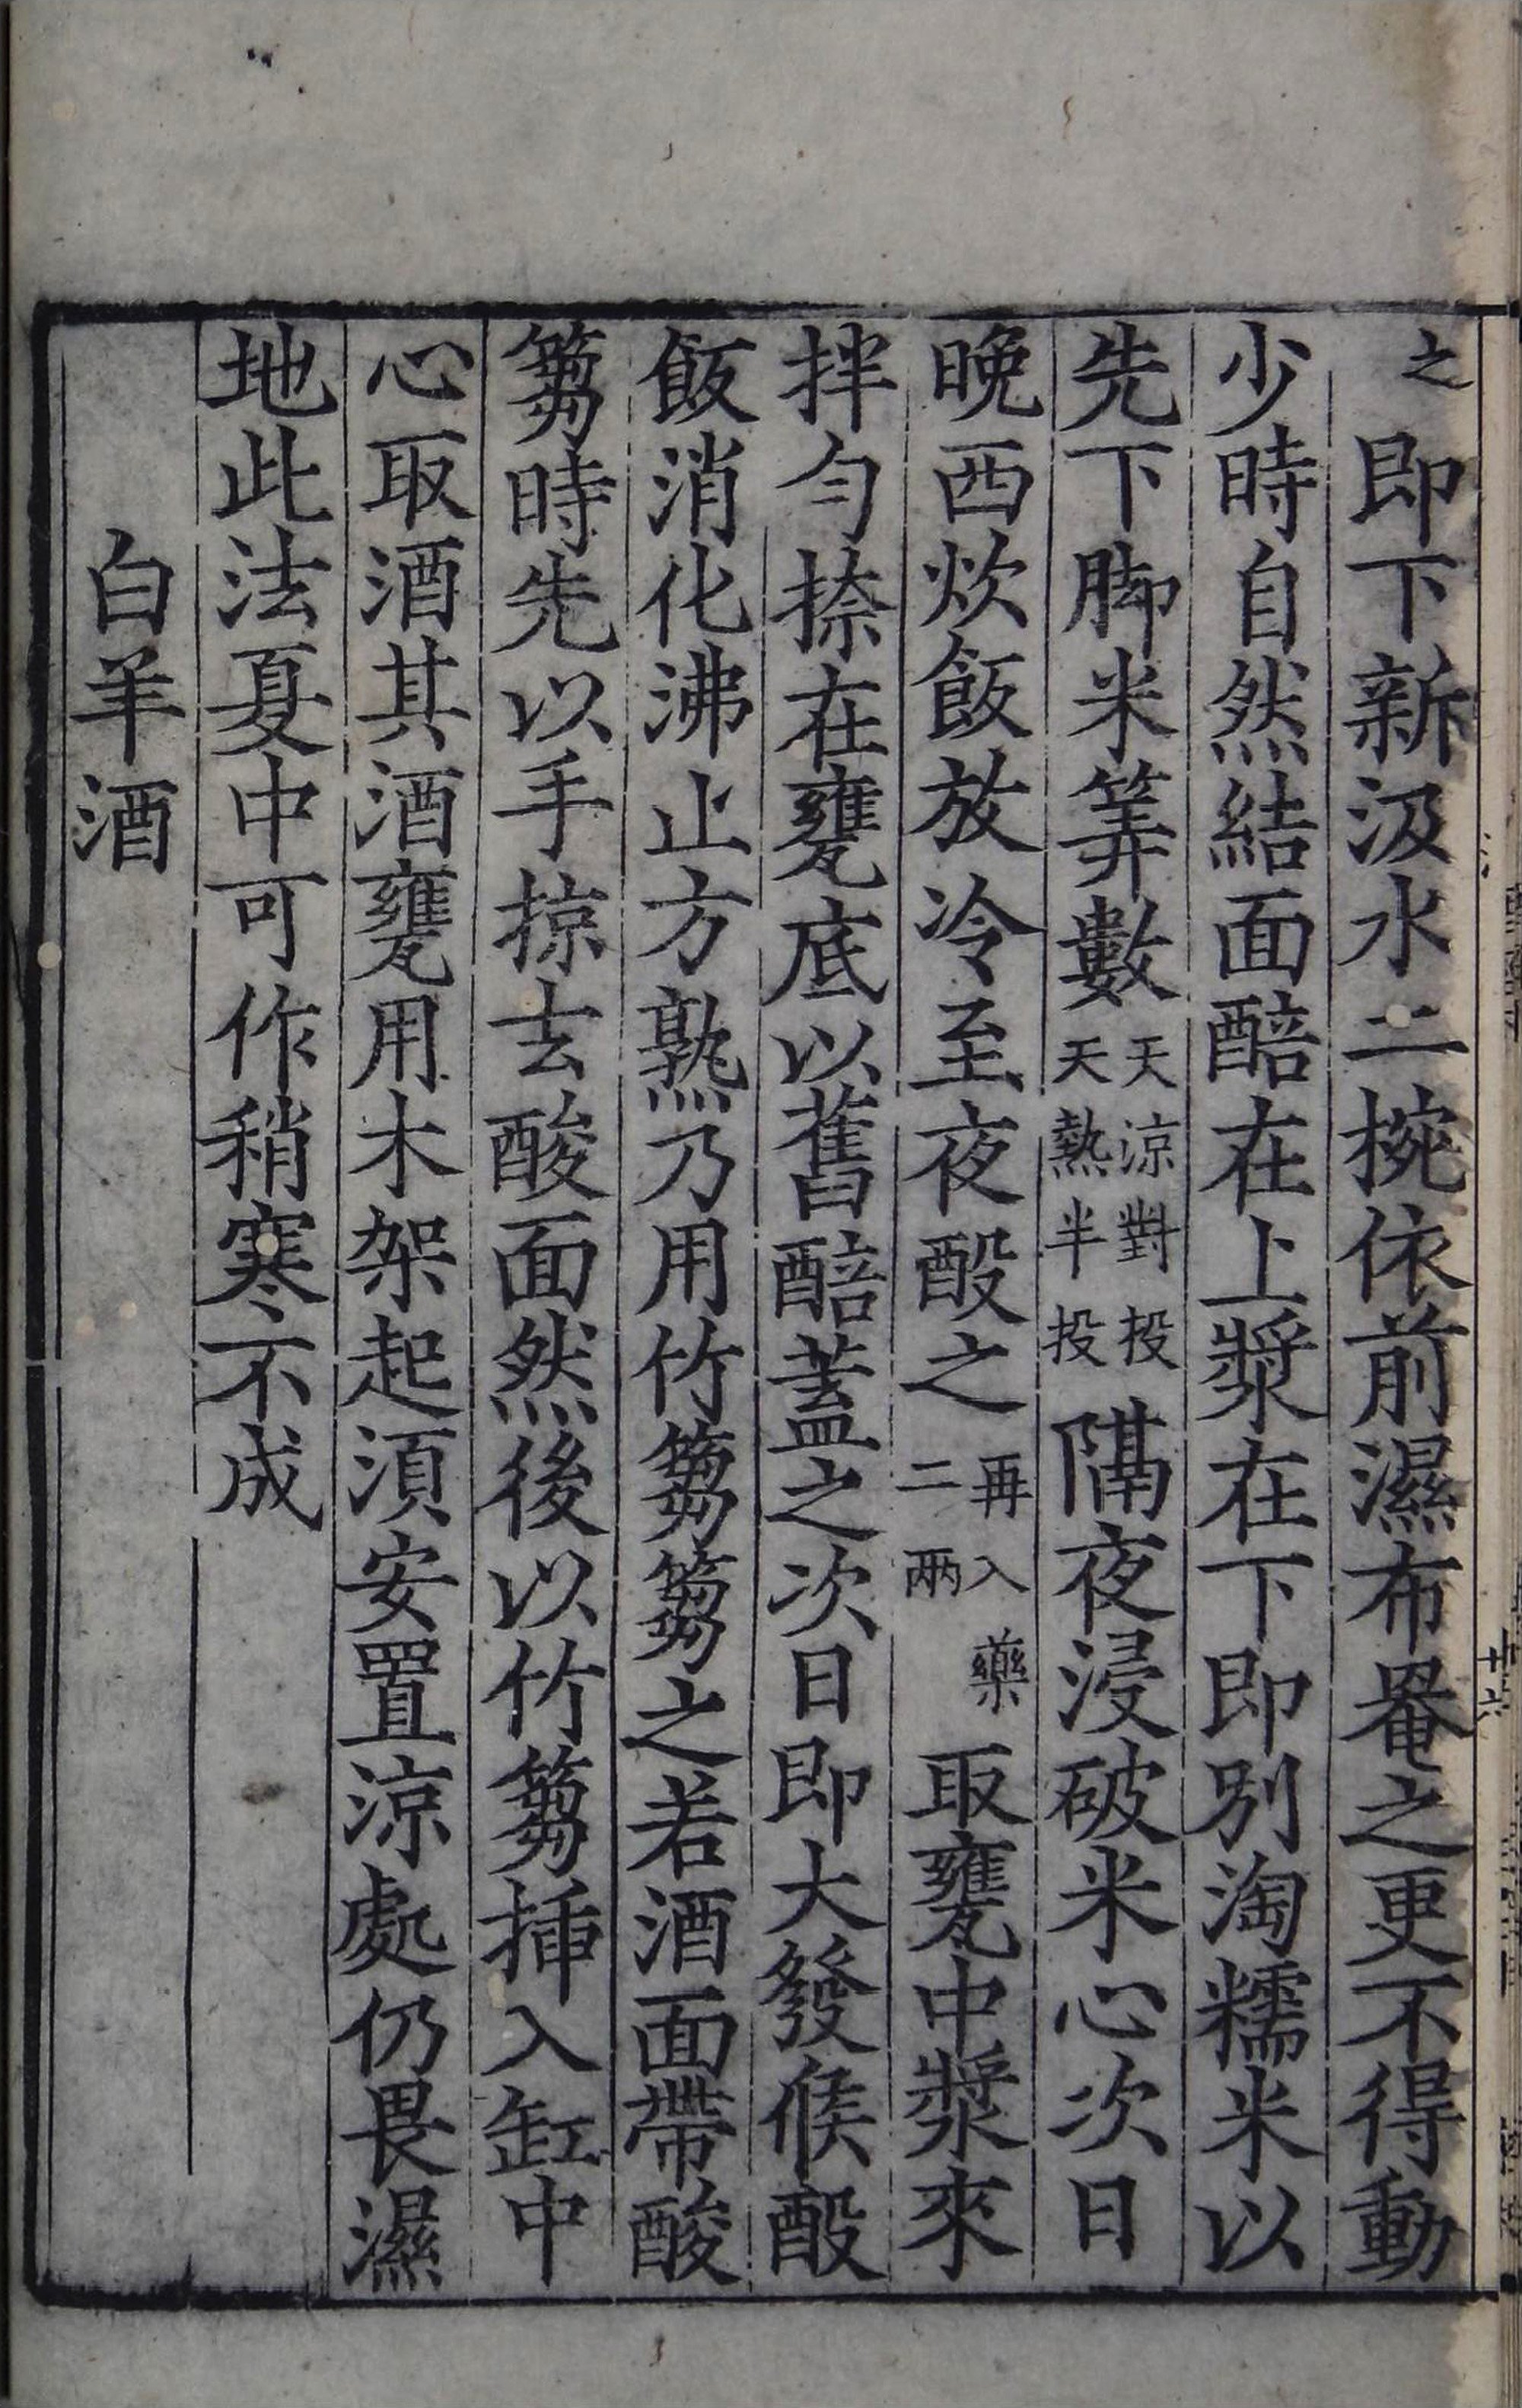 之即下新汲水二椀依前濕布罨之更不得動
少時自然結面醅在上漿在下即別淘糯米以
先下脚米筭數天涼對投天熱半投隔夜浸破米心次日
晚西炊飯放冷至夜酘之再入藥二兩取甕中漿來
拌勻捺在甕底以舊醅蓋之次日即大發候酘
飯消化沸止方熟乃用竹篘篘之若酒面帶酸
篘時先以手掠去酸面然後以竹篘揷入缸中
心取酒其酒甕用木架起須安置涼處仍畏濕
地此法夏中可作稍寒不成
白羊酒